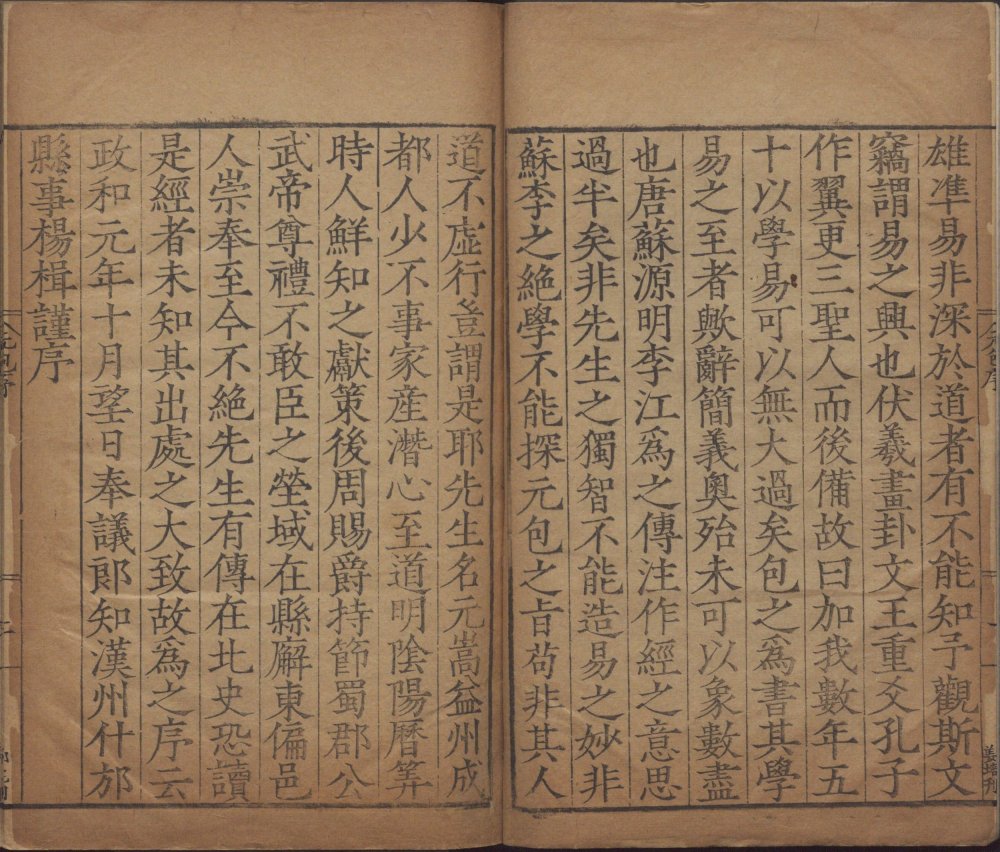 雄準易非深於道者有不能知予觀斯文
竊謂易之興也伏羲畫卦文王重爻孔子
作翼更三聖人而後備故曰加我數年五
十以學易可以無大過矣包之爲書其學
易之至者歟辭簡義奧殆未可以象數盡
也唐蘇源明李江爲之傳注作經之意思
過半矣非先生之獨智不能造易之妙非
蘇李之絶學不能探元包之旨苟非其人
道不虛行豈謂是耶先生名元嵩益州成
都人少不事家産潛心至道明陰陽曆筭
時人鮮知之獻策後周賜爵持節蜀郡公
武帝尊禮不敢臣之塋域在縣廨東偏邑
人崇奉至今不絶先生有傳在北史恐讀
是經者未知其出處之大致故爲之序云
政和元年十月望日奉議郎知漢州什邡
縣事楊楫謹序